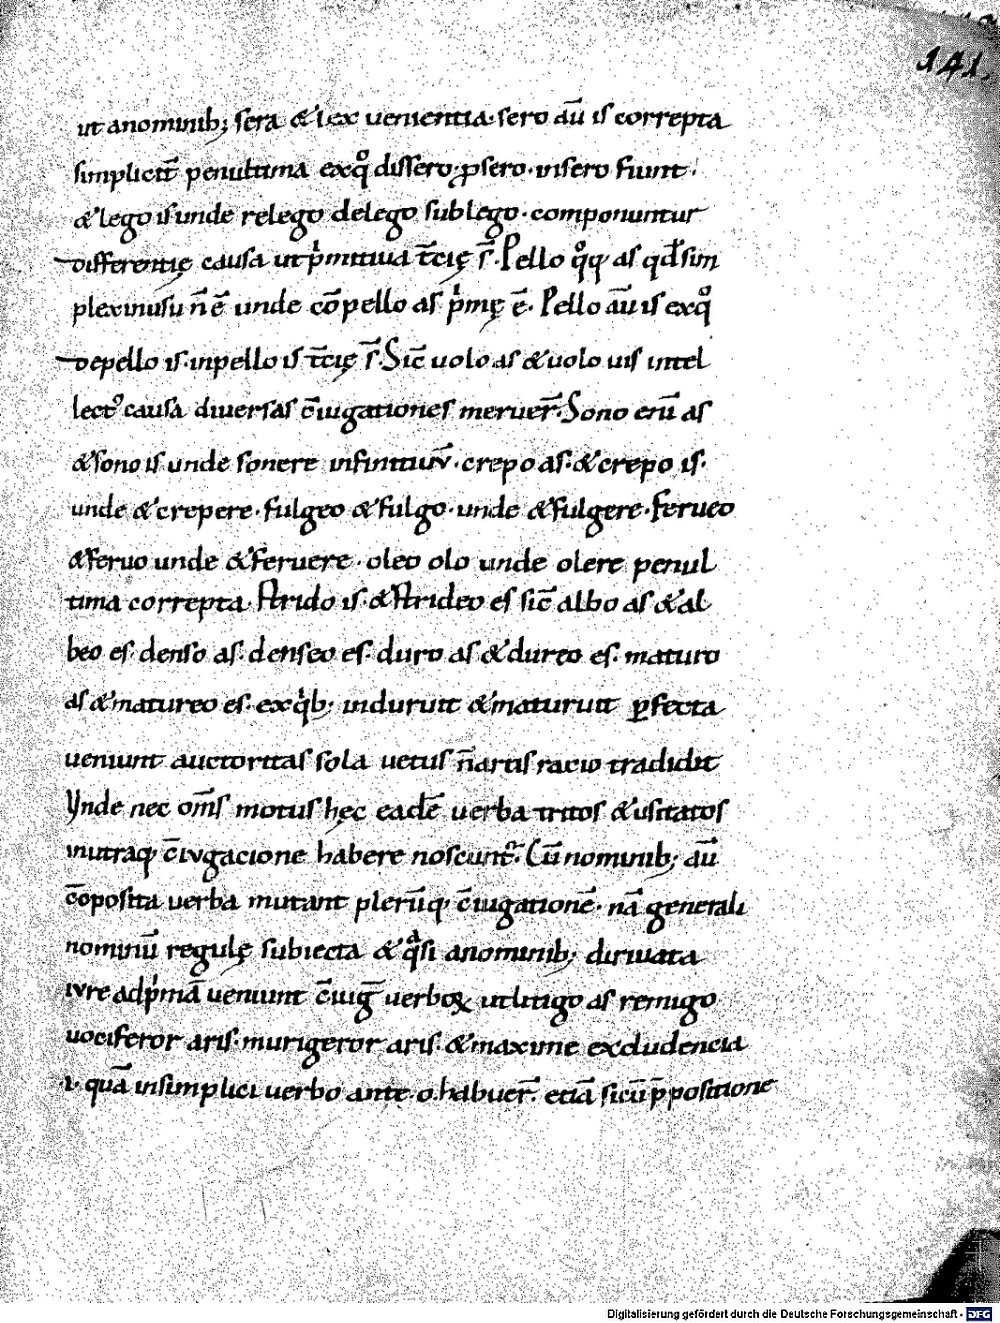 141.
ut anominib; sera & lex uenientia· sero aū is correpta
simplicit̄ penultima exqͦ dissero· ꝓsero· insero fiunt·
& lego is unde relego delego sublego· componuntur
differentię causa ut pͥmitiua t̄cię s̄· Pello qͦꝗ as qđ sim
plex inusu n̄ ē unde cōpello as pͥmę ē· Pello aū is exqͦ
depello is· inpello is t̄cię s̄· Sic̄ uolo as & uolo uis intel
lectꝰ causa diuersas c̄iugationes meruer̄· Sono enī as
& sono is unde sonere infinitiuū· crepo as· & crepo is·
unde & crepere· fulgeo & fulgo· unde & fulgere· ferueo
& feruo unde & feruere· oleo olo unde olere penul
tima correpta· strido is & strideo es sic̄ albo as & al
beo es· denso as· denseo es· duro as & dureo es· maturo
as & matureo es· exqͥb; indurutt & maturutt ꝑfecta
ueniunt auctoritas sola uetus n̄ artis racio tradidit
Vnde nec om̄s motus hęc eadē uerba tritos & usitatos
inutraqꝫ c̄iugacione habere noscunt᷑· Cū nominib; aū
cōposita uerba mutant plerūqꝫ c̄iugationē· nā generali
nominū regulę subiecta & qͣsi anominib; diriuata
iure adpͥmā ueniunt c̄iuḡ uerboꝝ ut litigo as remigo
uociferor aris· murigeror aris· & maxime excludencia
·i· quā insimplici uerbo ante· o· habuer̄· etiā sicū p̄positione
Digitalisierung gefördert durch die Deutsche Forschungsgemeinschaft - DFG